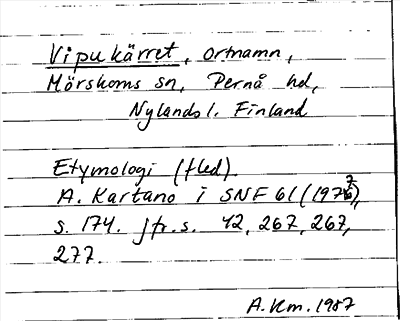 Vipukärret, ortnamn,
Mörskoms sn, Pernå hd,
Nylands l. Finland
Etymologi (fled).
A. Kartano i SNF 61 (1977),
s. 174. jfr. s. 42, 267, 267,
277.
A. Km. 1987